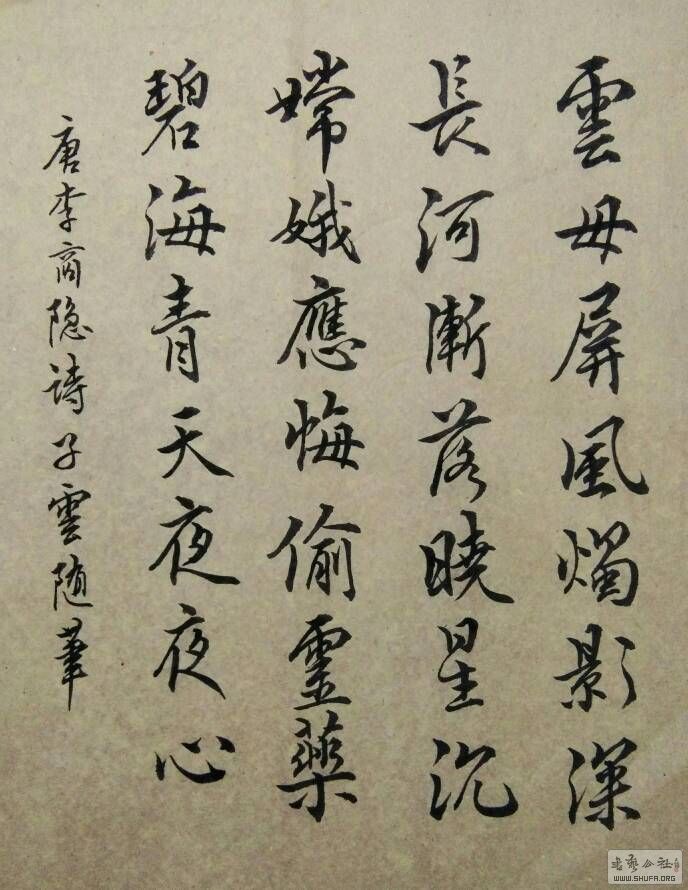 雲母屏風燭影深
長河漸落曉星沉
嫦娥應悔偷靈藥
碧海青天夜夜心
唐李商隐詩子雲随筆
书艺公社
WWW.SHUFA.ORG